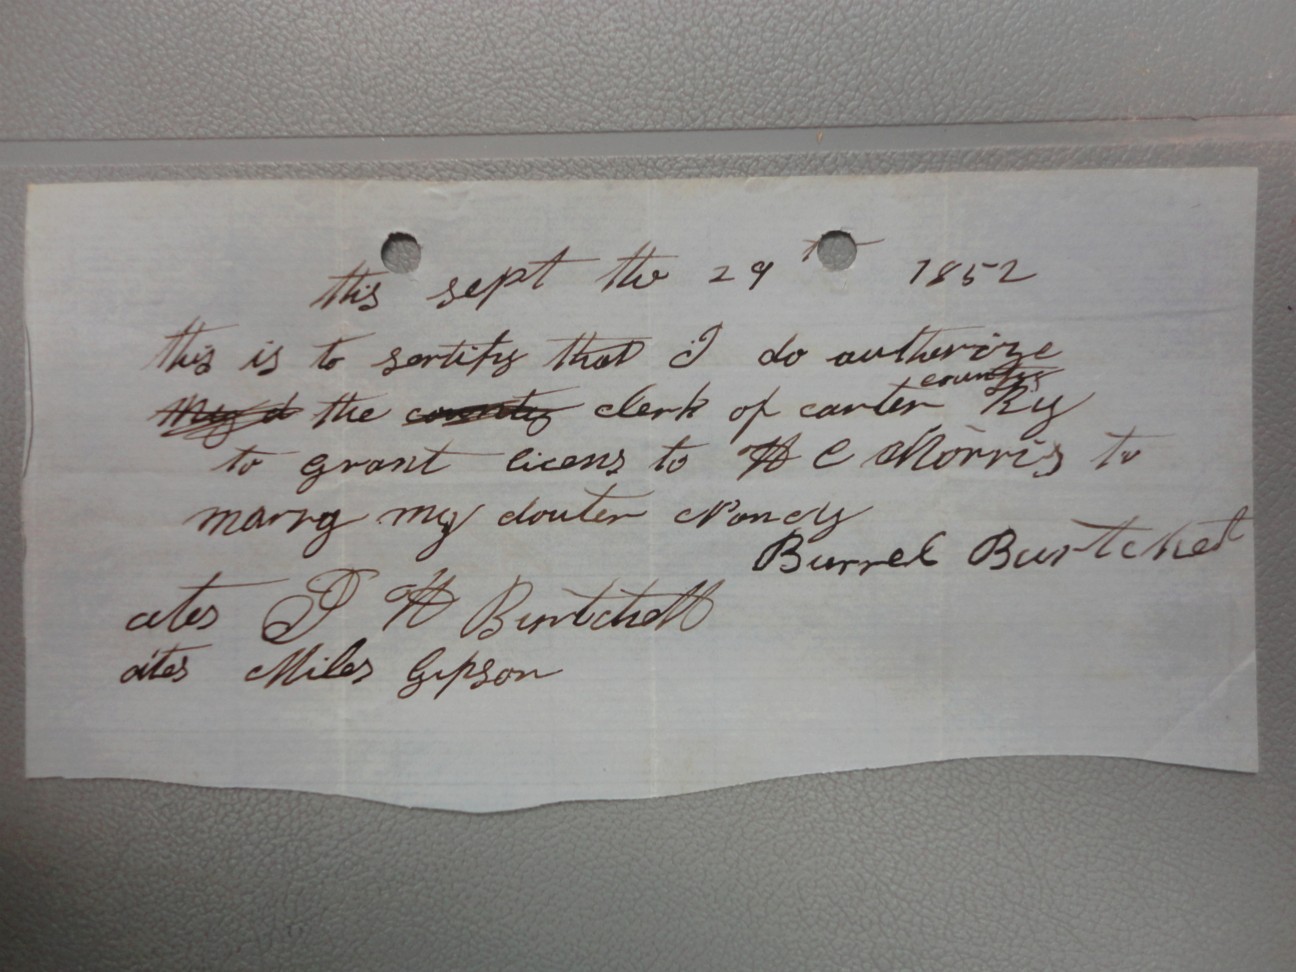 this sept the 29th 1852
this is to sertify that I do authorize
the county clerk of carter county Ky
to grant licens to H C Morris to
marry my douter Nancy
Burrel Burtchet
ates J H Burtchett
ates Miles Gipson